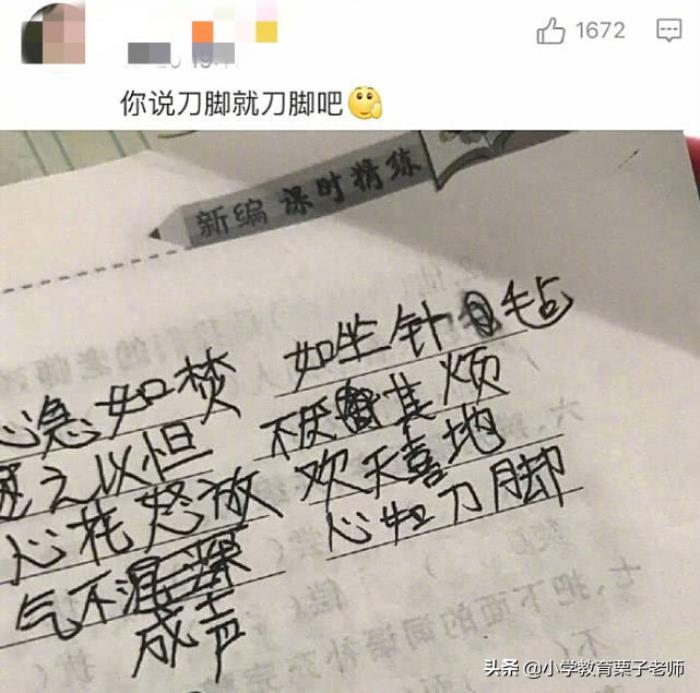 1672
你说刀脚就刀脚吧
新编 课时精练
心急如焚 如坐针毡
之以怛 不厌其烦
心花怒放 欢天喜地
气不 心如刀脚
成声
头条 @小学教育栗子老师